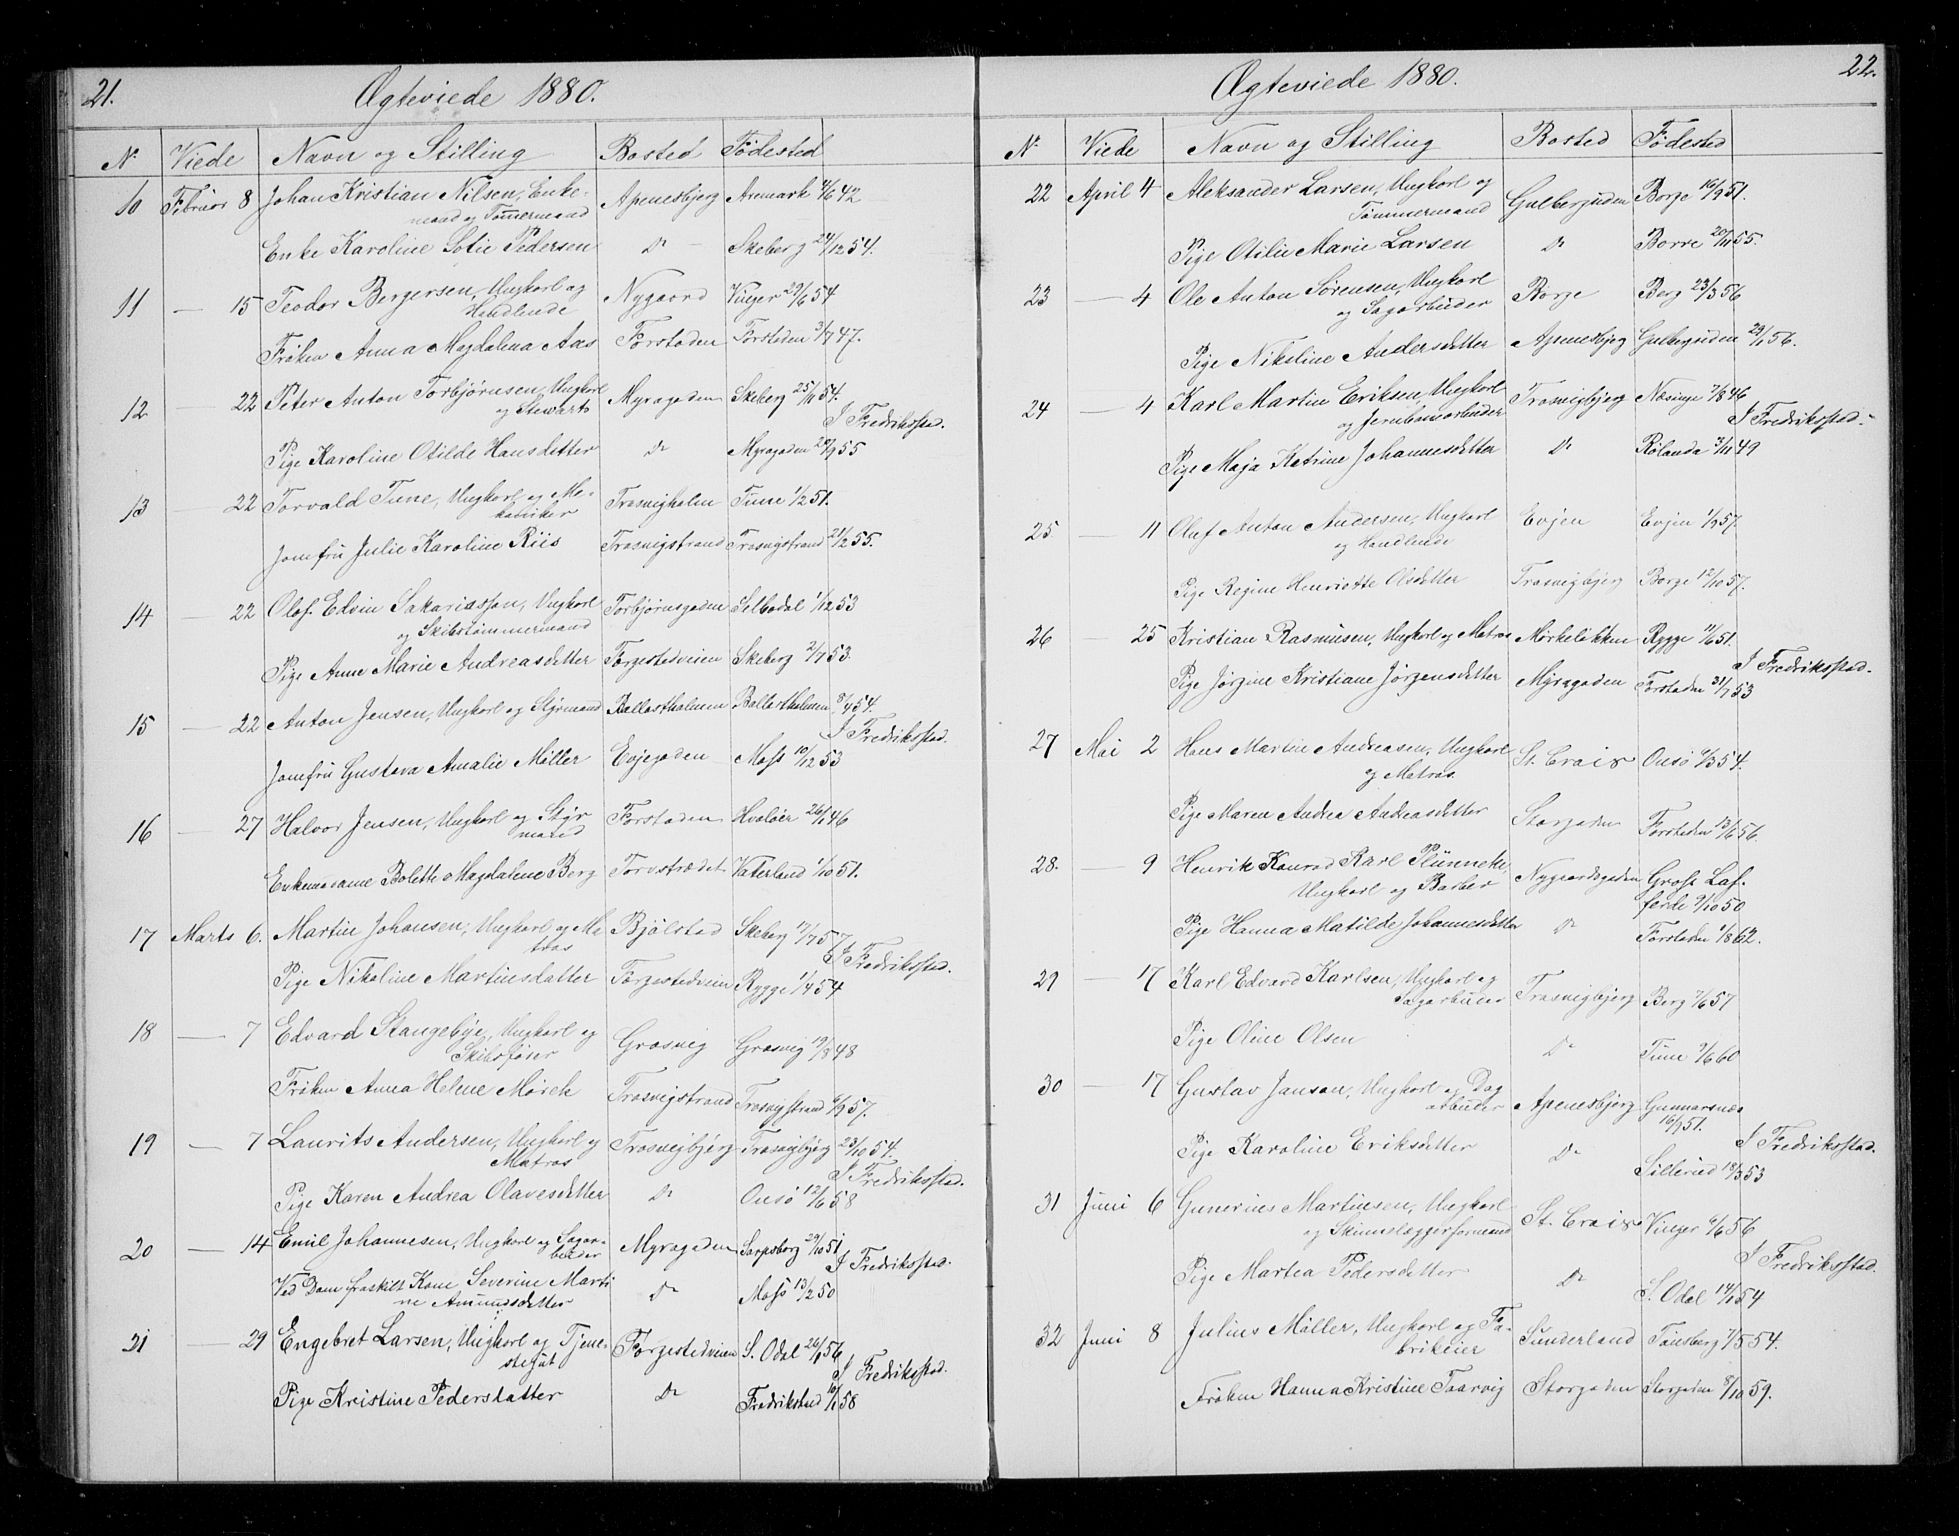 21.
Ægteviede 1880.
Nr Viede Navn og Stilling Bosted Fødested
10 Februar 8 Johan Kristian Nilsen, Enke- Apenesbjerg Aremark 42
mand og Tømmermand
Enke Karoline Sofie Pedersen Do Skeberg 24/12 54.
11 — 15 Teodor Bergersen, Ungkarl og Nygaard Vinger 29/6 54
Handlende
Frøken Anna Magdalena Aas Forstaden Forstaden 3/7 47.
12 — 22 Peter Anton Torbjørnsen, Ungkarl Myragaden Skeberg 25/11 54.
og Stewarts
I Fredriksstad.
Pige Karoline Otilde Hansdatter Do Myragaden 28/9 55
13 — 22 Torvald Tune, Ungkarl og Me- Trosvigholm Tune 1/2 51.
kaniker
Jomfru Julie Karoline Riis Trosvigstrand Trosvigstrand 21/2 55.
14 — 22 Olof Edvin Sakariasson, Ungkarl Torbjørnsgaden Silbodal 1/12 53
og Skibstømmermand
Pige Anne Marie Andreasdatter Torgestedveien Skeberg 2/7 53.
15 — 22 Anton Jensen, Ungkarl og Styrmand Ballastholmen Ballastholmen 8/4 54.
I Fredriksstad.
Jomfru Gustava Amalie Møller Evjegaden Moss 10/12 53
16 — 27 Halvor Jensen, Ungkarl og Styr Forstaden Hvaløer 26/1 46
mand
Enkemadame Bolette Magdalene Berg Torvstrædet Vaterland 1/10 51.
17 Marts 6. Martin Johansen, Ungkarl og Ma Bjølstad Skeberg 17/7 57
tros
I Fredriksstad.
Pige Nikoline Martinsdatter Torgestedveien Rygge 1/4 54
18 — 7 Edvard Stangebye, Ungkarl og Gresvig Gresvig 19/8 48
Skibsfører
Frøken Anna Helene Mörch Trosvigstrand Trosvigstrand 6/9 57.
19 — 7 Laurits Andersen, Ungkarl og Trosvigbjerg Trosvigbjerg 23/10 54.
Matros
I Fredriksstad.
Pige Karen Andrea Olavesdatter Do Onsø 12/6 58
20 — 14 Emil Johannesen, Ungkarl og Sagar- Myragaden Sarpsborg 29/10 51
beider
I Fredriksstad.
Ved Dom fraskilt Kone Severine Marti Do Moss 13/2 50
ne Amundsdatter
21 — 29 Engebret Larsen, Ungkarl og Tjene- Torgestedveien S. Odal 26/1 56
stegut
I Fredriksstad.
Pige Kristine Pedersdatter Do Fredrikstad 10/1 58
22.
Ægteviede 1880.
Nr Viede Navn og Stilling Bosted Fødested
22 April 4 Aleksander Larsen, Ungkarl og Gulbergsuden Borge 16/9 51.
Tømmermand
Pige Otilie Marie Larsen Do Borre 20/11 55.
23 — 4 Ole Anton Sørensen, Ungkarl Borge Berg 23/3 56
og Sagarbeider
Pige Nikoline Andersdatter Apenesbjerg Gulbergsuden 29/1 56.
24 — 4 Karl Martin Eriksen, Ungkarl Trosvigbjerg Næsinge 7/8 46
og Jernbanearbeider
I Fredriksstad.
Pige Maja Katrine Johannesdatter Do Rölanda 3/11 49
25 — 11 Oluf Anton Andersen, Ungkarl Evjen Evjen 1/9 57.
og Handlende
Pige Regine Henriette Olsdatter Trosvigbjerg Borge 12/10 57.
26 — 25 Kristian Rasmusen, Ungkarl og Matros Mörkeløkken Rygge 51.
I Fredriksstad.
Pige Jørgine Kristiane Jørgensdatter Myragaden Forstaden 31/7 53
27 Mai 2 Hans Martin Andreasen, Ungkarl St. Croix Onsø 9/3 54.
og Matros
Pige Maren Andrea Andreasdatter Storgaden Forstaden 13/6 56.
28. — 9 Henrik Konrad Karl Plünneke, Nygaardsgaden Gross Laf-
Ungkarl og Barber ferde 9/10 50
Pige Hanna Matilde Johannesdatter Do Forstaden 1/8 62.
29 — 17 Karl Edvard Karlsen, Ungkarl og Trosvigbjerg Berg 7/6 57
Sagarbeider
Pige Oline Olsen Do Tune 7/6 60
30 — 17 Gustav Janson, Ungkarl og Dag Apenesbjerg Gunnarsnæs
arbeider 16/7 51.
I Fredriksstad.
Pige Karoline Eriksdatter Do Sillerud 18/3 53
31 Juni 6 Gunerius Martinsen, Ungkarl St. Croix Vinger 6/6 56
og Skinnelæggerformand
I Fredriksstad.
Pige Martea Pedersdatter Do S. Odal 14/1 54
32 Juni 8 Julius Møller, Ungkarl og Fa- Sunderland Tønsberg 7/5 54.
brikeier
Frøken Hanna Kristine Taarvig Storgaden Storgaden 8/10 59.